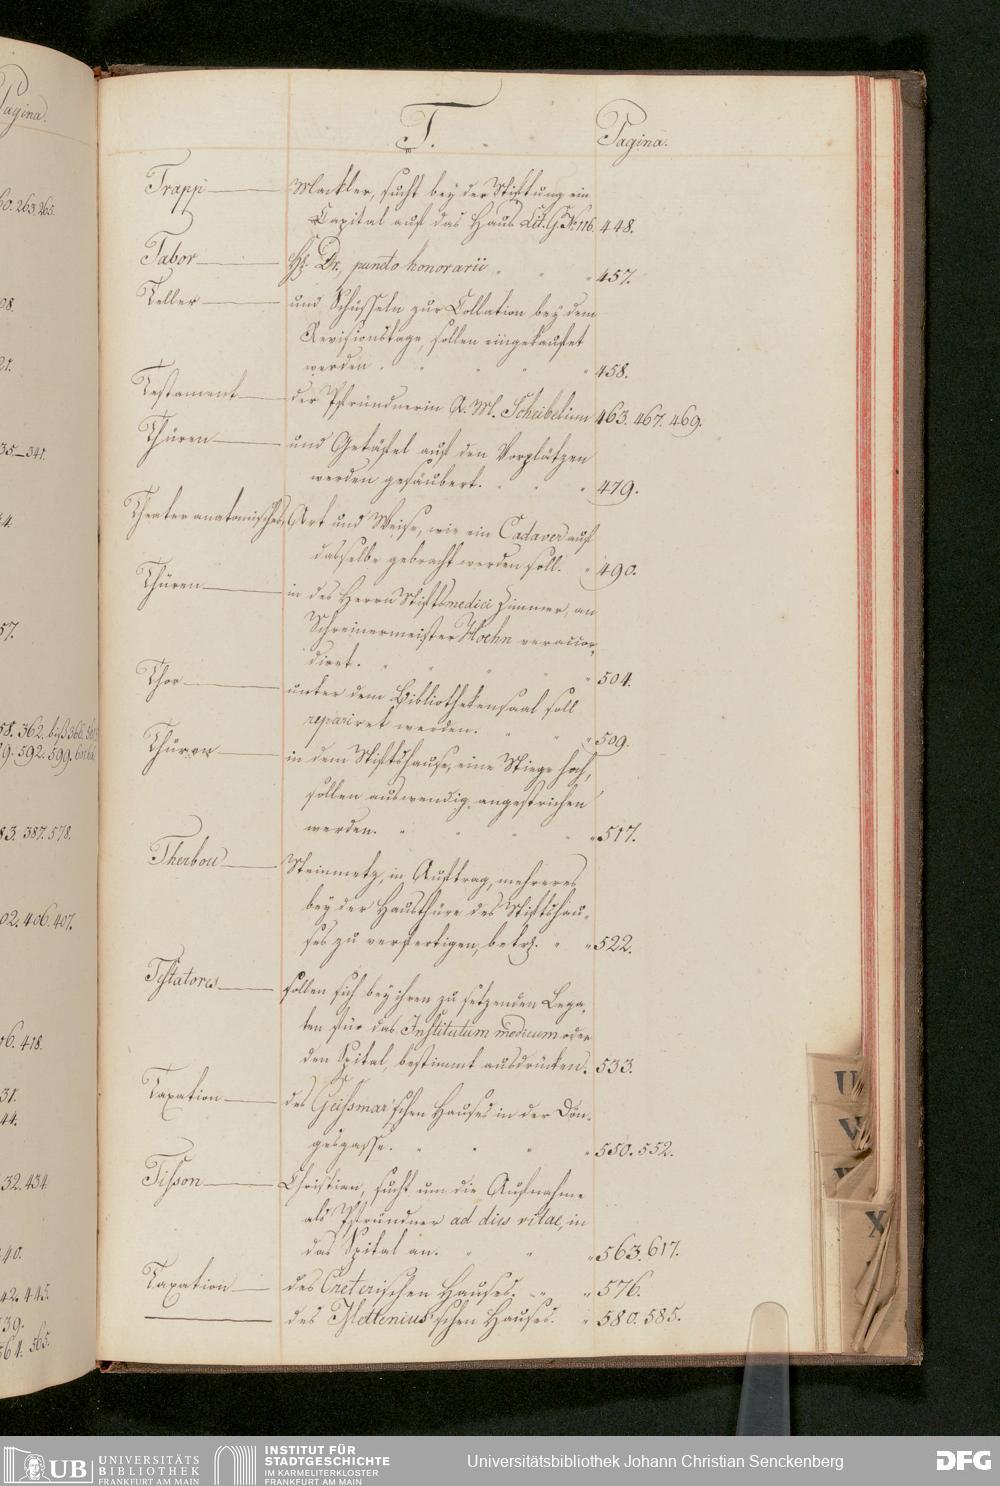 T.
Pagina.
Trapp
Mackler, sucht bey der Stiftung ein
Capital auf das Haus Lit. G. No. 116. 448.
Tabor
Hr. Dr. puncto honorarii 457.
Teller
und Schüsseln zur Collation bey dem
Revisionstage, sollen eingekauft
werden 458.
Testament
der Pfründnerin A. M. Scheibelinn 463. 467. 469.
Thüren
und Getäfel auf den Vorplätzen
werden gesäubert. 479.
Theater anatomisches,
Art und Weise, wie ein Cadaver auf
dasselbe gebracht werden soll. 490.
Thüren
in des Herrn Stiftsmedici Zimmer, an
Schreinermeister Hoehn veraccor-
diret. 504.
Thor
unter dem Bibliothekensaal soll
repariret werden. 509.
Thüren
in dem Stiftshause, eine Stiege hoch,
sollen auswendig angestrichen
werden. 517.
Therbou
Steinmetz, in Auftrag, mehreres
bey der Hausthüre des Stiftshau-
ses zu verfertigen, betr. 522.
Testatores
sollen sich bey ihren zu setzenden Lega-
ten für das Institutum medicum oder
den Spital, bestimmt ausdrücken. 533.
Taxation
des Geissmar'schen Hauses in der Dön-
gesgasse. 550. 552.
Tisson
Christian, sucht um die Aufnahme
als Pfründner ad dies vitae, in
das Spital an. 563. 617.
Taxation
des Creterischen Hauses. 576.
des Mettenius'schen Hauses. 580. 585.
Pagina.
263. 265.
08.
21.
35.–341.
57.
58. 362. biß 366.
9. 592. 599.
83. 387. 578.
02. 406. 407.
16. 418.
31.
44.
32. 434.
40.
42. 445.
39.
564. 565.
U
V
W
X
UB UNIVERSITÄTS
BIBLIOTHEK
FRANKFURT AM MAIN
INSTITUT FÜR
STADTGESCHICHTE
IM KARMELITERKLOSTER
FRANKFURT AM MAIN
Universitätsbibliothek Johann Christian Senckenberg
DFG